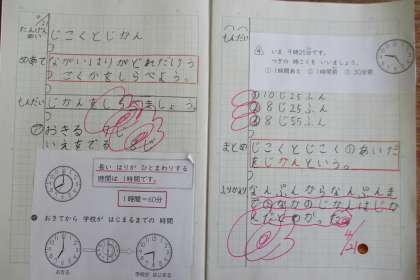 たんげん
じこくとじかん
めあて
ながいはりがどれだけうごくかをしらべよう。
もんだい
じかんをしらべましょう。
おきる
いえをでる 8じ
長い はりが ひとまわりする
時間は 1時間です。
1時間=60分
おきてから 学校が はじまるまでの 時間
おきる
学校が はじまる
もんだい
いま 午前9時25分です。
つぎの 時こくを いいましょう。
①1時間あと ②1時間前 ③30分前
①10じ25ふん
②8じ25ふん
③8じ55ふん
まとめ
じこくとじこくのあいだ
をじかんという。
ふりかえり
なんぷんからなんぷんま
でのなかのじかんはじか
んだとわかった。